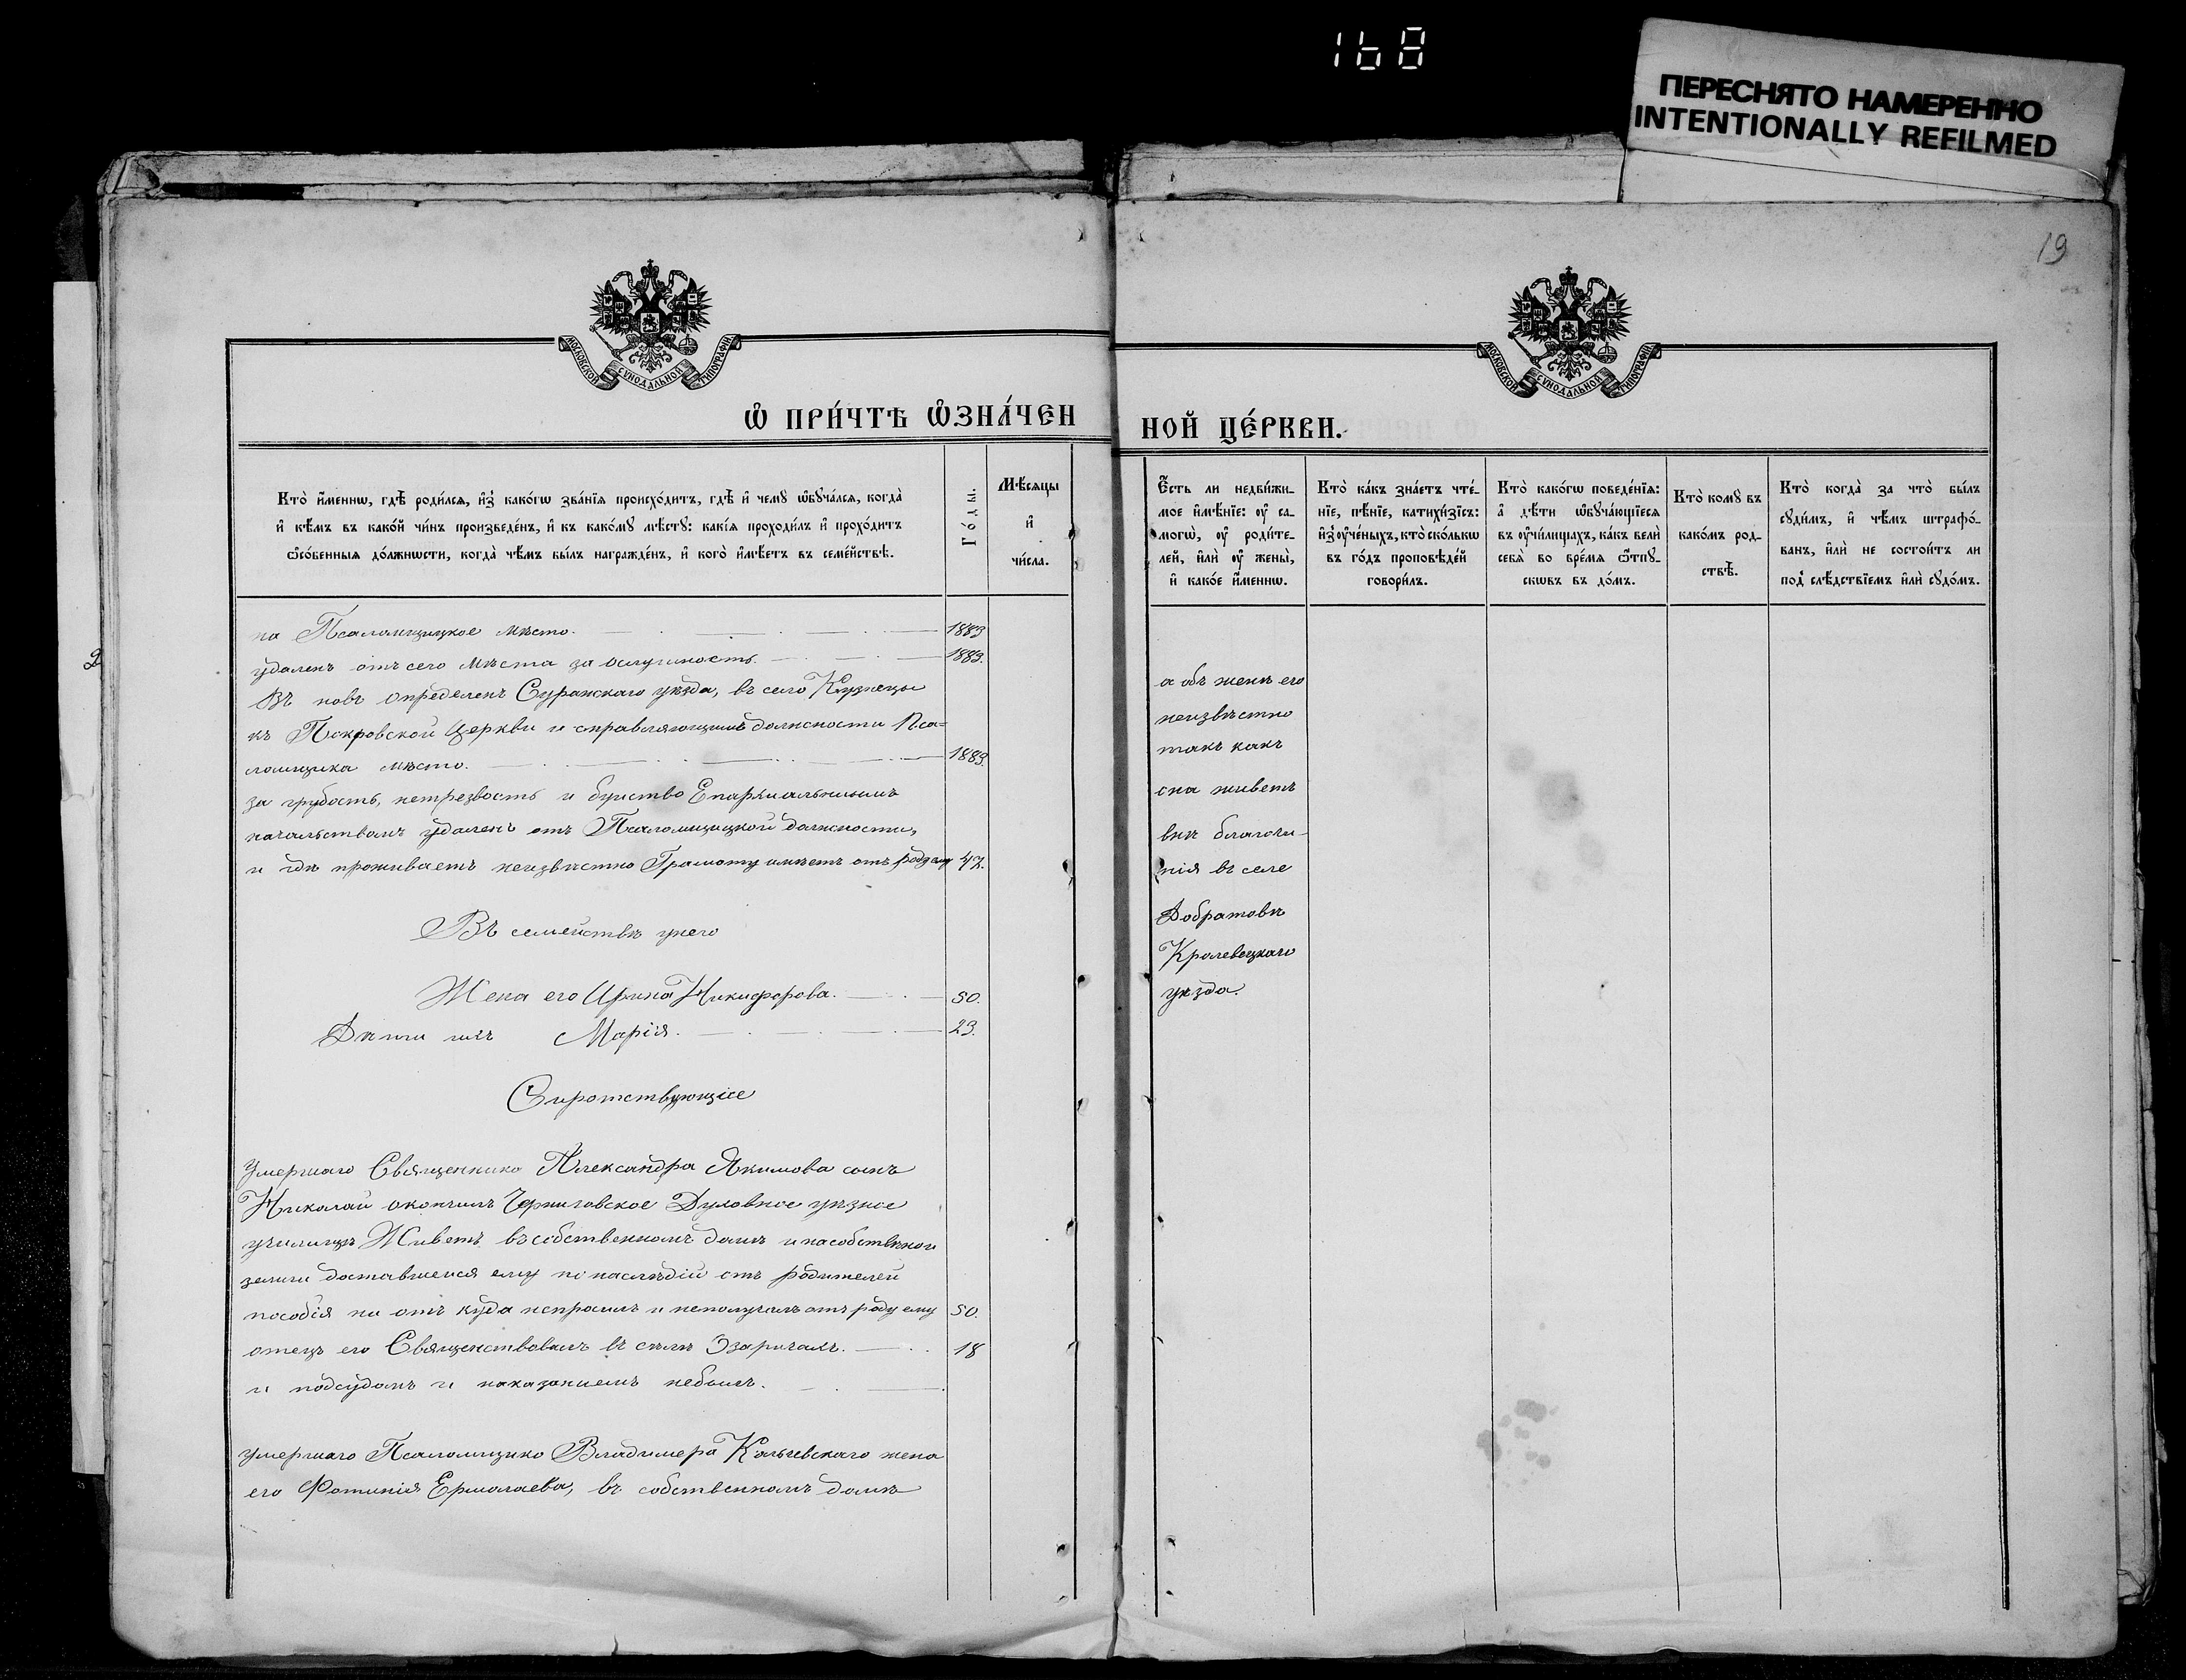 168
ПЕРЕСНЯТО НАМЕРЕННО
INTENTIONALLY REFILMED
19
МОСКОВСКОЙ СѴНОДАЛЬНОЙ ТИПОГРАФІИ
МОСКОВСКОЙ СѴНОДАЛЬНОЙ ТИПОГРАФІИ
Ѽ ПРИ́ЧТѢ ѼЗНА́ЧЕН
НОЙ ЦЕ́РКВИ.
Кто̀ и҆́менно, гдѣ̀ роди́лся, и҆з̾ како́гѡ зва́нїя происхо́дитъ, гдѣ̀ и҆ чемꙋ̀ ѡ҆бꙋча́лся, когда̀
и҆ кѣ́мъ въ како́й чи́нъ произведе́нъ, и҆ къ како́мꙋ мѣ́стꙋ: какі́я проходи́лъ и҆ прохо́дитъ
ѻ҆со́бенныя до́лжности, когда̀ чѣ́мъ бы́лъ награжде́нъ, и҆ кого̀ и҆мѣ́етъ въ семе́йствѣ.
Го́ды.
Мѣ́сяцы
и҆
чи́сла.
Є҆́сть ли недви́жи-
мое и҆мѣ́нїе: ᲂу҆ са-
могѡ̀, ᲂу҆ роди́те-
лей, и҆лѝ ᲂу҆ жены̀,
и҆ како́е и҆́менно.
Кто̀ ка́къ зна́етъ чте́-
нїе, пѣ́нїе, катихи́зїсъ:
и҆з̾ ᲂу҆че́ныхъ, кто̀ ско́лькѡ
въ го́дъ проповѣ́дей
говори́лъ.
Кто̀ како́гѡ поведе́нїя:
а҆ дѣ́ти ѡ҆бꙋча́ющїеся
въ ᲂу҆чи́лищахъ, ка́къ велѝ
себѧ̀ во вре́мя ѿпꙋ-
сковъ въ до́мъ.
Кто̀ комꙋ̀ въ
како́мъ род-
ствѣ̀.
Кто̀ когда̀ за что̀ бы́лъ
сꙋди́мъ, и҆ чѣ́мъ штрафо́-
ванъ, и҆лѝ не состои́тъ ли
под̾ слѣ́дствїемъ и҆лѝ сꙋдо́мъ.
на Псаломщицкое мѣсто. 1883
удаленъ отъ сего мѣста за ослушность. 1883.
Въ новь опредѣленъ Суражскаго уѣзда, въ село Кузнецы
къ Покровской Церкви и справляющимъ должности Пса-
ломщика мѣсто. 1883.
за грубость, нетрезвость и буиство Епархиальнымъ
начальствомъ удаленъ отъ Псаломщицкой должности,
и гдѣ проживаетъ неизвѣстно Грамоту имѣетъ отъ роду ему 47.
Въ семействѣ унего
Жена его Ирина Никифорова. 50.
Дѣти ихъ Марія. 23.
Сиротствующіе
Умершаго Священника Александра Якимова сынъ
Николай окончилъ Черниговское Духовное уѣзное
училище Живетъ въ собственномъ домѣ и на собственнои
земли доставшеися ему по наслѣдіи отъ родителеи
пособія ни отъ куда непросилъ и неполучалъ отъ роду ему 50.
отецъ его Священствовалъ въ селѣ Озаричахъ. 18
и подсудомъ и наказаниемъ небылъ.
умершаго Псаломщика Владимера Кальчевскаго жена
его Фотинія Ермолаева, въ собственномъ домѣ
а объ женѣ его
неизвѣстно
такъ какъ
она живетъ
внѣ благочи-
нія въ селе
Добратовѣ
Кролевецкаго
уѣзда.